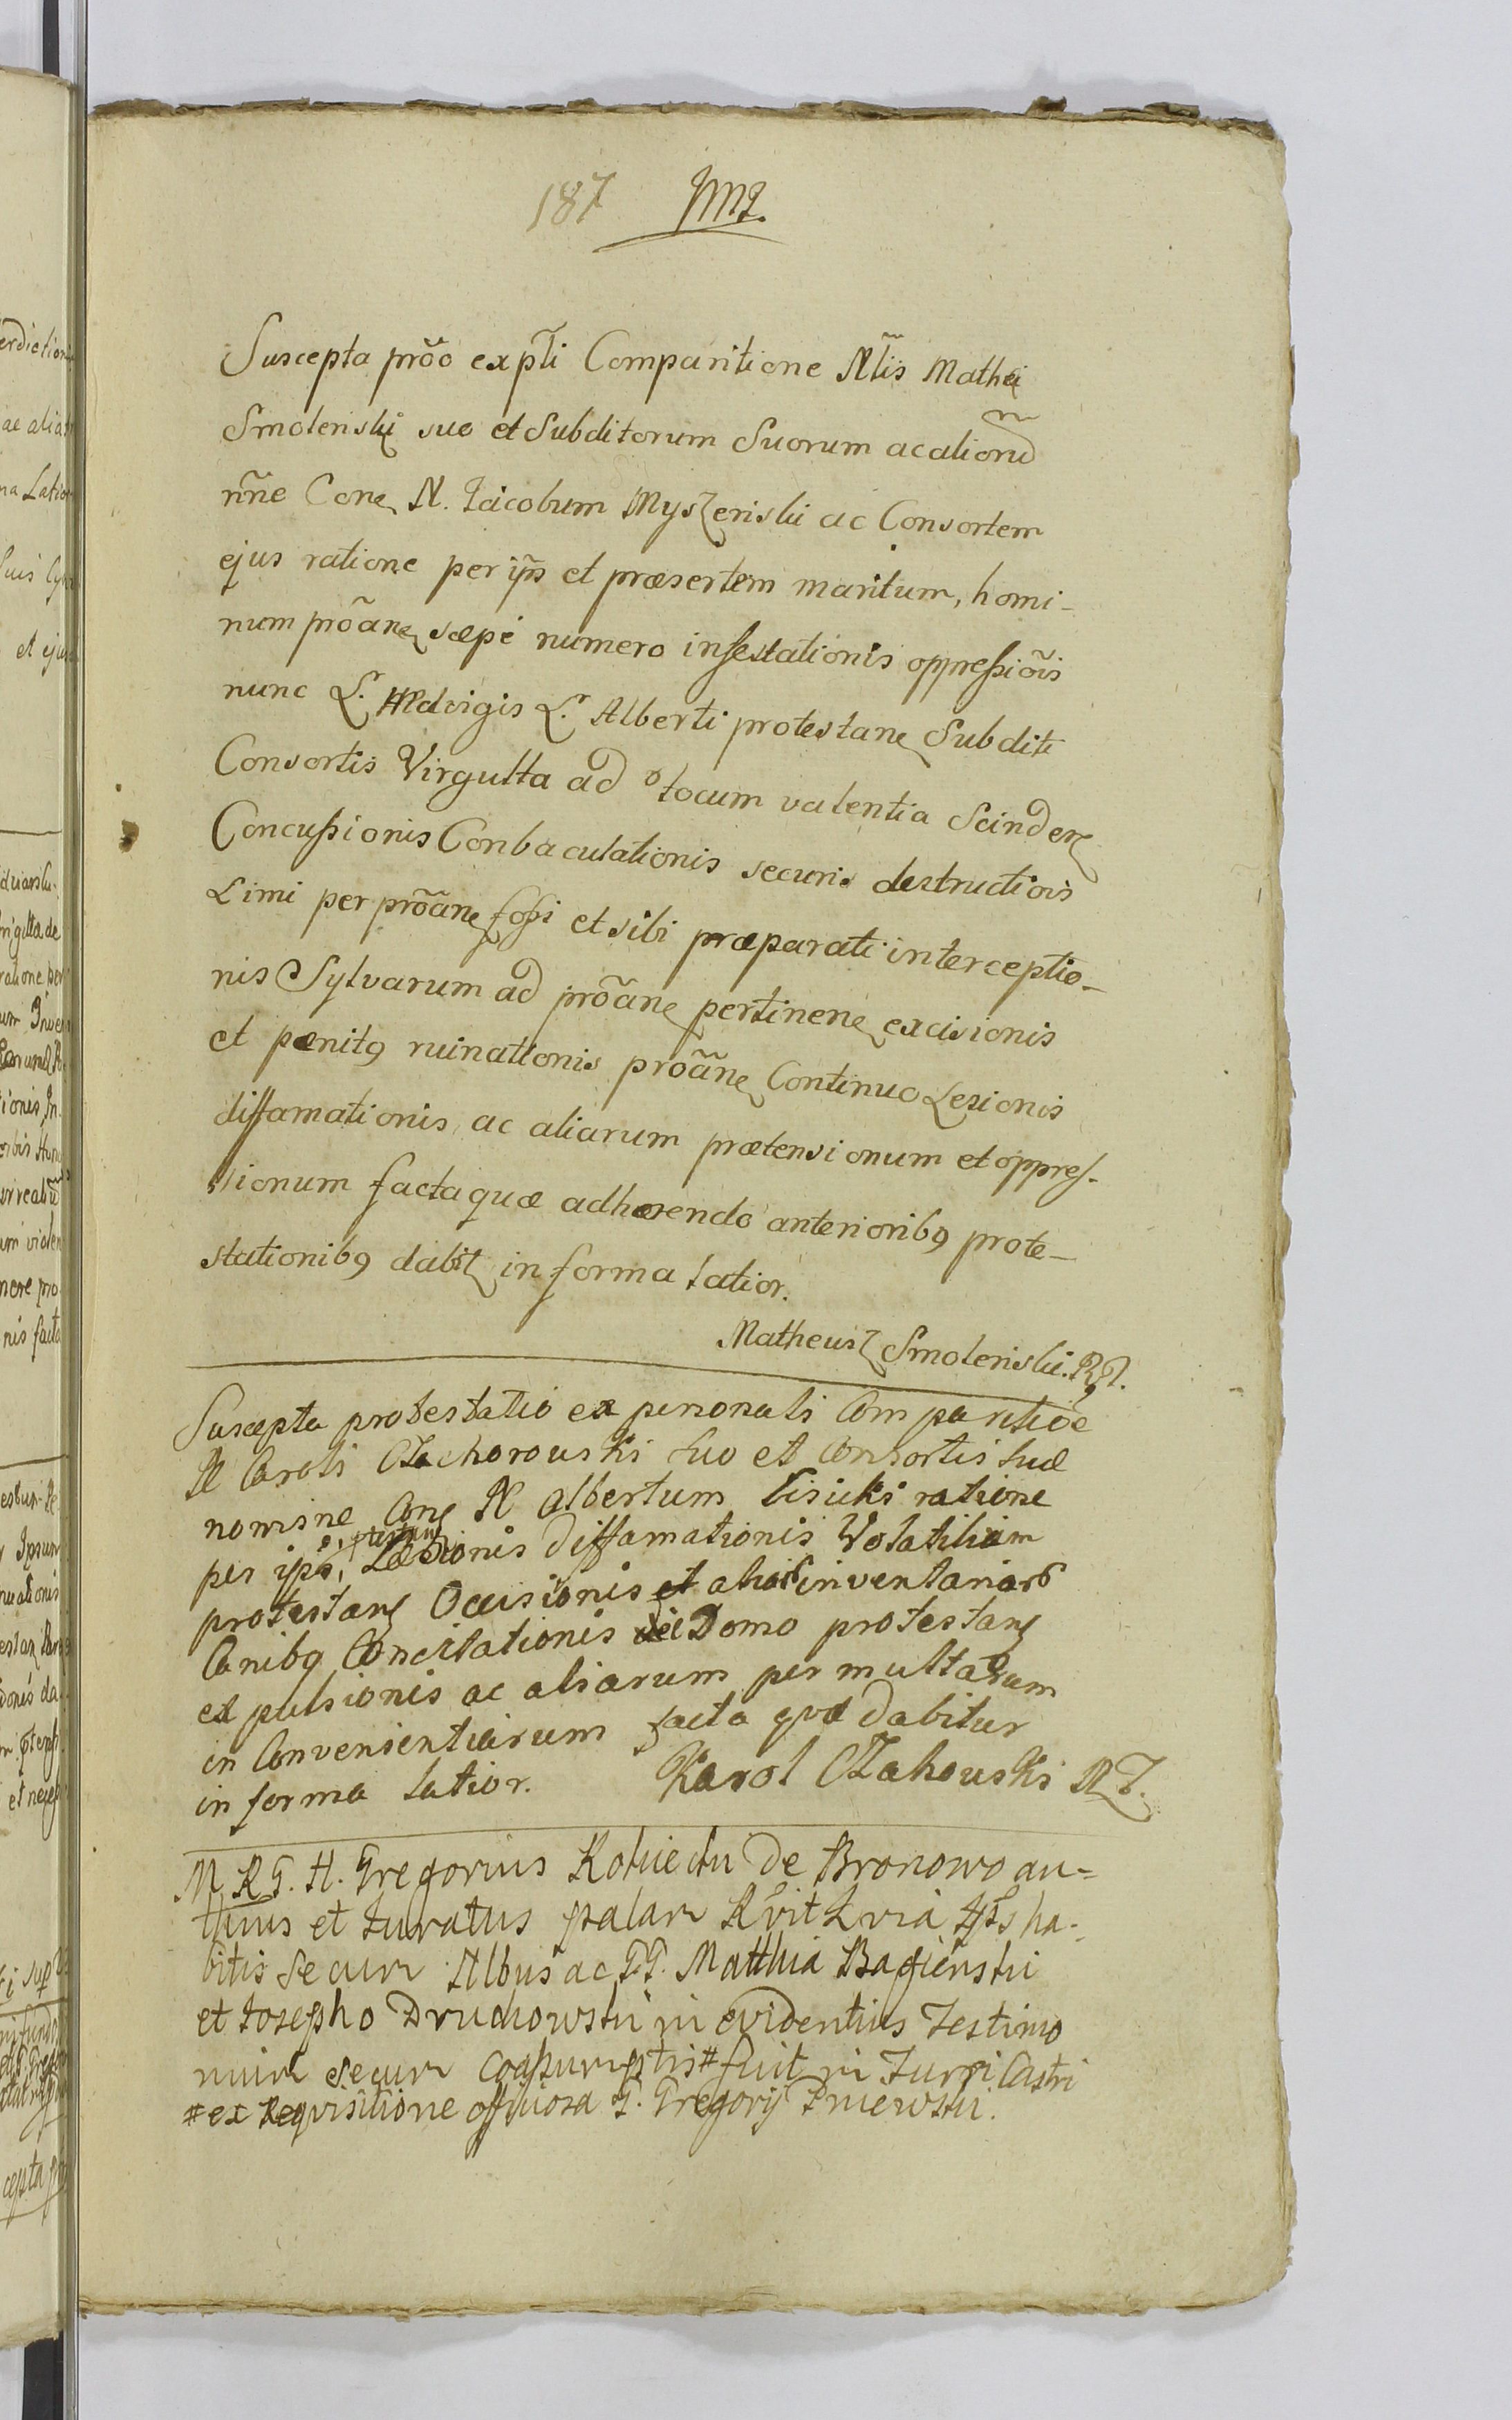 187
Suscepta prõo expłi Comparitione Nłis Mathei
Smolenski suo et Subditorum Suorum ac aliorũ
nñe Con̨ N. Jacobum Myszenski ac Consortem
ejus ratione per ip̃s et præsertem maritum, homi-
num prõan̨ sæpe numero infestationis oppressiõis
nunc L. Hedvigis L. Alberti protestan̨ Subditi
Consortis Virgulta ad focum valentia Scinden̨
Concussionis Conbaculationis securis destructiõis
Limi per prõan̨ fossi et sibi præparati interceptio-
nis Sylvarum ad prõan̨ pertinen̨ excisionis
et pænitꝰ ruinationis prõan̨ Continuo Lesionis
diffamationis, ac aliarum prætensionum et oppres-
sionum facta quæ adhærendo anterioribꝰ prote-
stationibꝰ dabit̨ in forma latior.
Matheusz Smolenski.
Suscepta protestatio ex personali Comparitiõe
N Caroli Czachorouski suo et Consortis suæ
nomine Con̨ N Albertum Lisicki ratione
per ips, Læsionis Diffamationis Volatilium
protestan̨ Occisionis et inventarior
Canibꝰ Concitationis Domo protestan̨
expulsionis ac aliarum per multarum
in Convenientiarum facta quæ dabitur
in forma latior. Karol Czahouski
M R G. H. Gregorius de Bronowo au-
thius et Juratus palam ha-
bitis Secum Nlbus ac G.G. Matthia Bagienski
et Josepho Druchowski in evidentius Testimo
nium secum # fuit in Castri
# ex Requisitione officiosa G. Gregorij Pniewski.